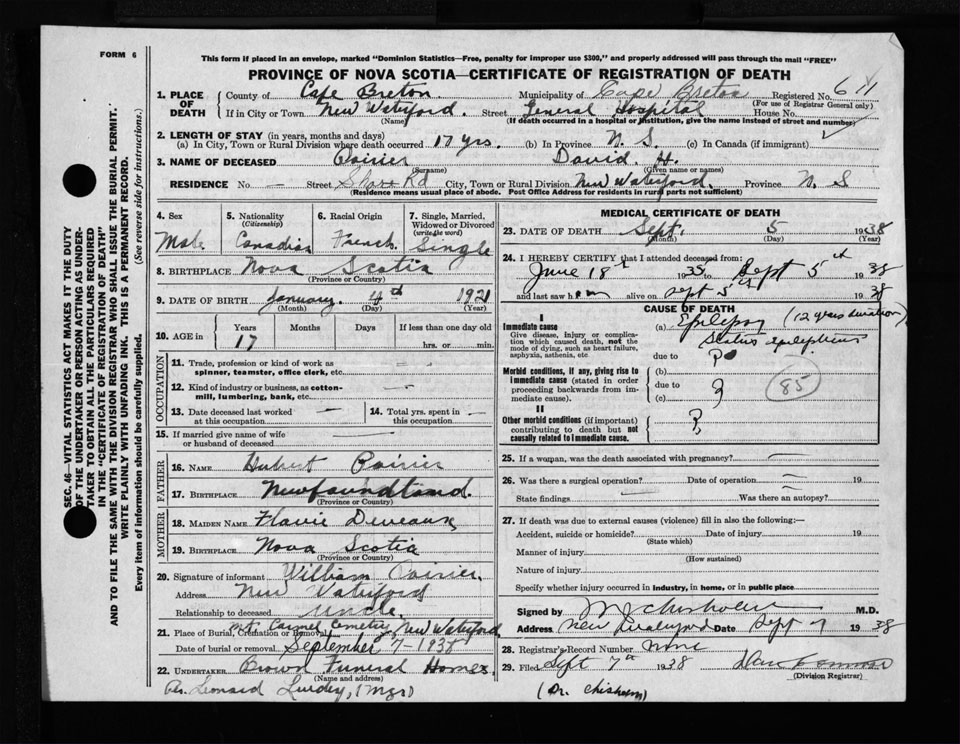 FORM 6
This form if placed in an envelope, marked "Dominion Statistics—Free, penalty for improper use $300," and properly addressed will pass through the mail "FREE"
PROVINCE OF NOVA SCOTIA—CERTIFICATE OF REGISTRATION OF DEATH
SEC. 46—VITAL STATISTICS ACT MAKES IT THE DUTY
OF THE UNDERTAKER OR PERSON ACTING AS UNDER-
TAKER TO OBTAIN ALL THE PARTICULARS REQUIRED
IN THE "CERTIFICATE OF REGISTRATION OF DEATH"
AND TO FILE THE SAME WITH THE DIVISION REGISTRAR WHO SHALL ISSUE THE BURIAL PERMIT.
WRITE PLAINLY WITH UNFADING INK. THIS IS A PERMANENT RECORD.
Every item of information should be carefully supplied. (See reverse side for instructions.)
1. PLACE OF DEATH County of Cape Breton Municipality of Cape Breton Registered No. 611
(For use of Registrar General only)
If in City or Town New Waterford Street General Hospital House No.
(Name) (If death occurred in a hospital or institution, give the name instead of street and number)
2. LENGTH OF STAY (in years, months and days)
(a) In City, Town or Rural Division where death occurred 17 yrs. (b) In Province N. S. (c) In Canada (if immigrant)
3. NAME OF DECEASED Poirier David. H.
(Surname) (Given name or names)
RESIDENCE No. — Street Rd City, Town or Rural Division New Waterford. Province N. S
(Residence means usual place of abode. Post Office Address for residents in rural parts not sufficient)
4. Sex Male
5. Nationality (Citizenship) Canadian
6. Racial Origin French
7. Single, Married, Widowed or Divorced (write the word) Single
8. BIRTHPLACE Nova Scotia
(Province or Country)
9. DATE OF BIRTH January 1921
(Month) (Day) (Year)
10. AGE in Years 17 Months Days If less than one day old hrs. or min.
OCCUPATION
11. Trade, profession or kind of work as spinner, teamster, office clerk, etc.
12. Kind of industry or business, as cotton-mill, lumbering, bank, etc.
13. Date deceased last worked at this occupation — 14. Total yrs. spent in this occupation —
15. If married give name of wife or husband of deceased —
FATHER
16. NAME Hubert Poirier
17. BIRTHPLACE Newfoundland.
(Province or Country)
MOTHER
18. MAIDEN NAME Flavie Deveaux
19. BIRTHPLACE Nova Scotia
(Province or Country)
20. Signature of informant William Poirier.
Address New Waterford
Relationship to deceased Uncle
21. Place of Burial, Cremation or Removal Mt. Carmel Cemetery New Waterford
Date of burial or removal September 7-1938
22. UNDERTAKER Brown Funeral Homes,
(Name and address)
Leonard (Mgr)
MEDICAL CERTIFICATE OF DEATH
23. DATE OF DEATH Sept. 5 1938
(Month) (Day) (Year)
24. I HEREBY CERTIFY that I attended deceased from:
June 18th 1935 to Sept 5th 1938
and last saw him alive on Sept 5th 1938
CAUSE OF DEATH
I
Immediate cause
Give disease, injury or complication which caused death, not the mode of dying, such as heart failure, asphyxia, asthenia, etc
(a) Epilepsy (12 years duration)
Status epilepticus
due to ?
Morbid conditions, if any, giving rise to immediate cause (stated in order proceeding backwards from immediate cause).
(b)
due to ?
(c)
85
II
Other morbid conditions (if important) contributing to death but not causally related to immediate cause.
?
25. If a woman, was the death associated with pregnancy? —
26. Was there a surgical operation? — Date of operation — 19
State findings — Was there an autopsy?
27. If death was due to external causes (violence) fill in also the following:—
Accident, suicide or homicide? Date of injury 19
(State which)
Manner of injury
(How sustained)
Nature of injury
Specify whether injury occurred in industry, in home, or in public place
Signed by M Chisholm M.D.
Address New Waterford Date Sept 7 1938
28. Registrar's Record Number none
29. Filed Sept 7th 1938
(Division Registrar)
(Dr. Chisholm)